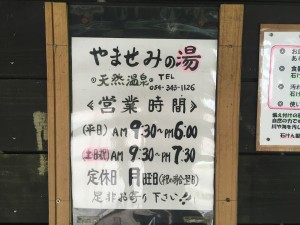 やませみの湯
◎天然温泉◎ TEL
054-343-1126
≪営業時間≫
(平日) AM 9:30~PM 6:00
(土日祝) AM 9:30~PM 7:30
定休日 月曜日(祝の場合翌日)
是非お寄り下さい!!